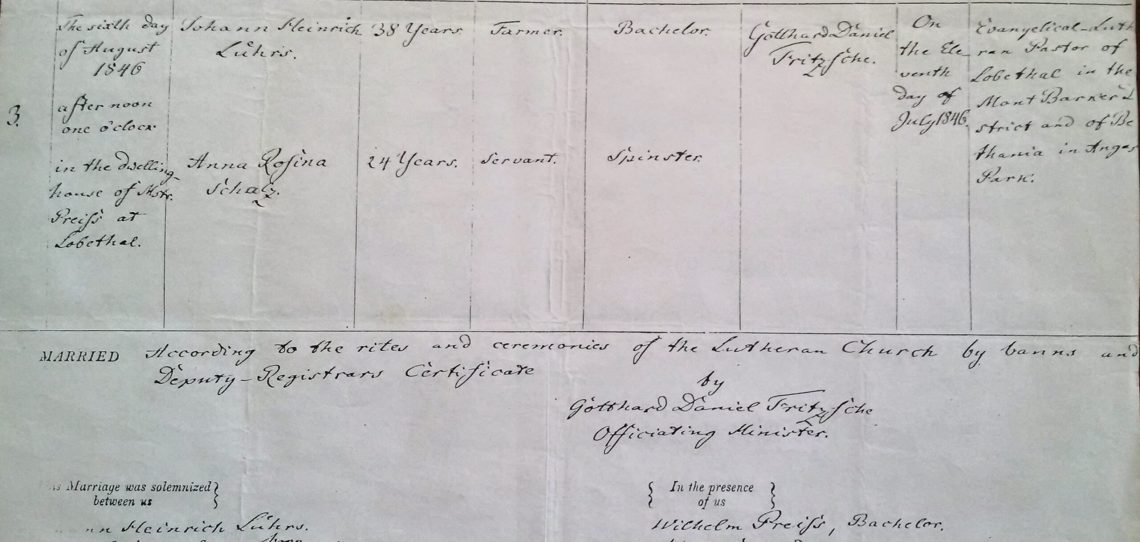 3.
The sixth day
of August
1846
after noon
one o'clock
in the dwelling
house of Mstr.
Preiſs at
Lobethal.
Johann Heinrich
Lührs.
Anna Rosina
Schalz.
38 Years
24 Years.
Farmer.
Servant.
Bachelor.
Spinster.
Gotthard Daniel
Fritzsche.
On
the Ele
venth
day of
July 1846
Evangelical-Luth
ran Pastor of
Lobethal in the
Mont Barker
strict and of Be
thania in Angas
Park.
MARRIED According to the rites and ceremonies of the Lutheran Church by banns and
Deputy-Registrars Certificate
by
Gotthard Daniel Fritzsche
Officiating Minister.
Marriage was solemnized
between us
Heinrich Lührs.
In the presence
of us
Wilhelm Preiſs, Bachelor.